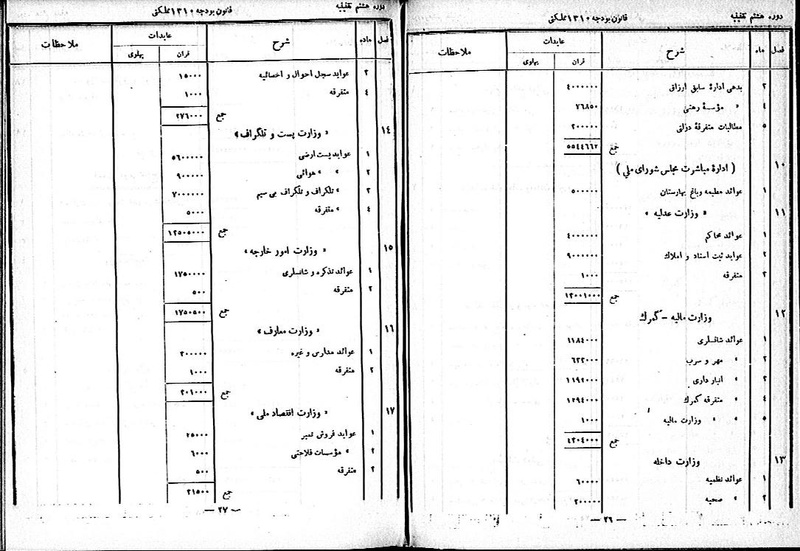 دوره هشتم تقنینیه
قانون بودجه ۱۳۱۰ مملکتی
فصل ماده شرح عایدات ملاحظات
قران پهلوی
۲ بدهی ادارهٔ سابق ارزاق ۴۰۰۰۰۰۰
۴ » مؤسسهٔ رهنی ۷۶۸۵۰
۵ مطالبات متفرقهٔ دزاتی ۲۰۰۰۰۰
جمع ۵۵۴۴۶۶۲
۱۰ ( ادارهٔ مباشرت مجلس شورای ملی )
۱ عوائد مطبعه وباغ بهارستان ۵۰۰۰۰۰
۱۱ « وزارت عدلیه »
۱ عوائد محاکم ۴۰۰۰۰۰۰
۲ عواید ثبت اسناد و املاك ۹۰۰۰۰۰۰
۳ متفرقه ۱۰۰۰
جمع ۱۳۰۰۱۰۰۰
۱۲ وزارت مالیه - گمرك
۱ عوائد شانسلری ۱۱۸۴۰۰۰
۲ » مهر و سرب ۶۳۳۰۰۰
۳ » انبار داری ۱۱۹۲۰۰۰
۴ » متفرقه گمرك ۱۲۹۴۰۰۰
۵ » » وزارت مالیه ۱۰۰۰
جمع ۴۳۰۴۰۰۰
۱۳ وزارت داخله
۱ عوائد نظمیه ۶۰۰۰۰
۲ » صحیه ۲۰۰۰۰۰
— ۲۶ —
دوره هشتم تقنینیه
قانون بودجه ۱۳۱۰ مملکتی
فصل ماده شرح عایدات ملاحظات
قران پهلوی
۳ عواید سجل احوال و احصائیه ۱۵۰۰۰
۴ متفرقه ۱۰۰۰
جمع ۲۷۶۰۰۰
۱۴ « وزارت پست و تلگراف »
۱ عواید پست ارضی ۵۶۰۰۰۰۰
۲ » » هوائی ۹۰۰۰۰۰
۳ » تلگراف و تلگراف بی سیم ۷۰۰۰۰۰۰
۴ » متفرقه ۵۰۰۰
جمع ۱۳۵۰۵۰۰۰
۱۵ « وزارت امور خارجه »
۱ عوائد تذکره و شانسلری ۱۷۵۰۰۰۰
۲ متفرقه ۵۰۰
جمع ۱۷۵۰۵۰۰
۱۶ « وزارت معارف »
۱ عوائد مدارس و غیره ۲۰۰۰۰۰
۲ متفرقه ۱۰۰۰
جمع ۲۰۱۰۰۰
۱۷ « وزارت اقتصاد ملی »
۱ عواید فروش تمبر ۲۵۰۰۰
۲ » مؤسسات فلاحتی ۶۰۰۰
۳ متفرقه ۵۰۰
جمع ۳۱۵۰۰
— ۲۷ —